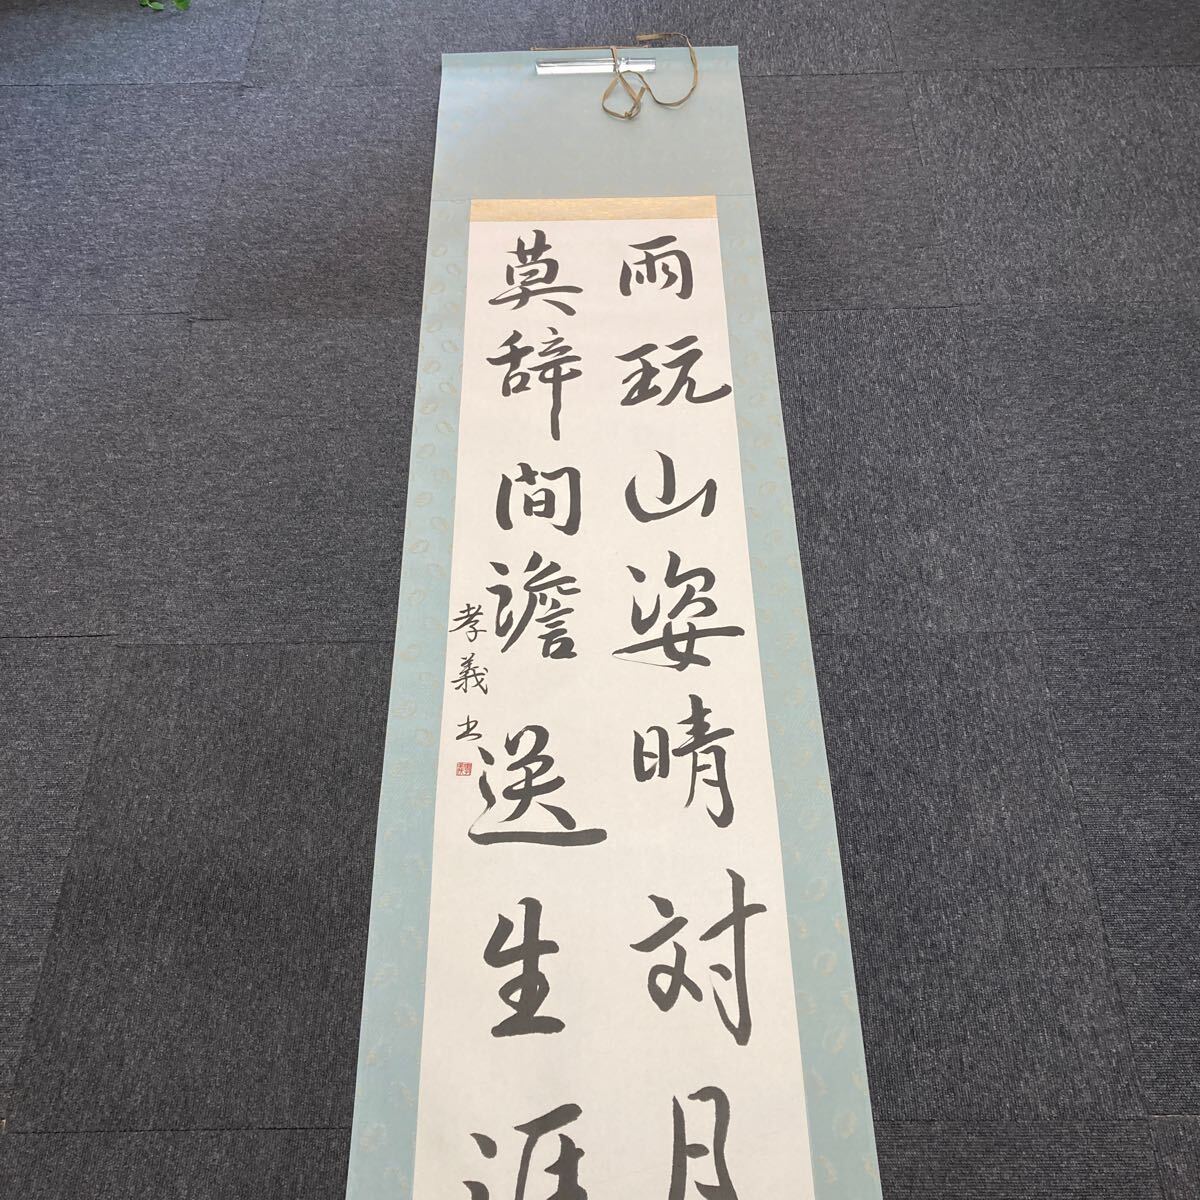 雨玩山姿晴対月
莫辞間澹送生涯
孝義書